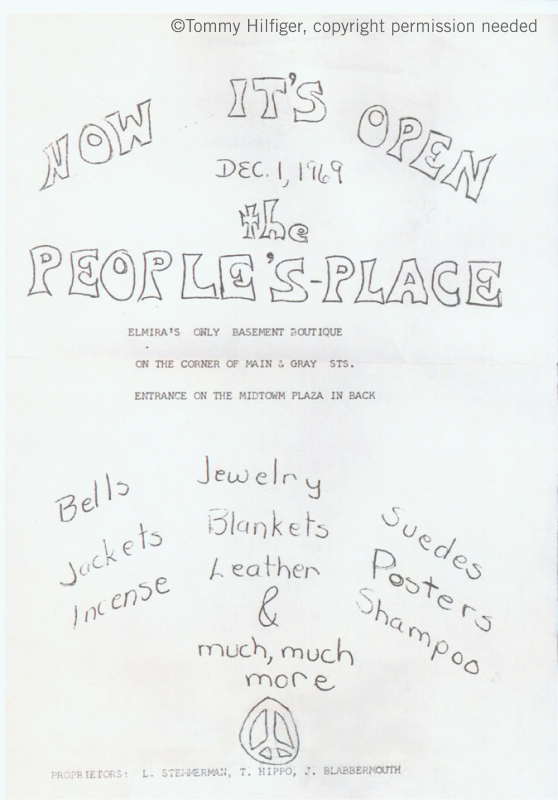 ©Tommy Hilfiger, copyright permission needed
NOW IT'S OPEN
DEC. 1, 1969
the
PEOPLE'S-PLACE
ELMIRA'S ONLY BASEMENT BOUTIQUE
ON THE CORNER OF MAIN & GRAY STS.
ENTRANCE ON THE MIDTOWM PLAZA IN BACK
Bells
Jackets
Incense
Jewelry
Blankets
Leather
&
much, much
more
Suedes
Posters
Shampoo
PROPRIETORS: L. STEMMERMAN, T. HIPPO, J. BLABBERMOUTH